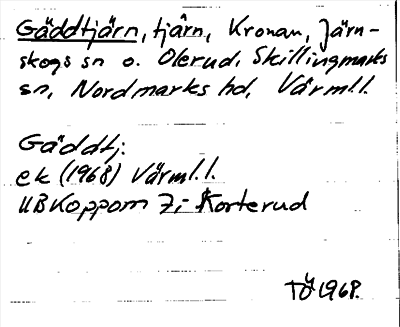 Gäddtjärn, tjärn, Kronan, Järn-
skogs sn o. Olerud, Skillingmarks
sn, Nordmarks hd, Värml.l.
Gäddtj:
ek (1968) Värml.l.
UBKoppom 7;- Korterud
TÖ 1968.